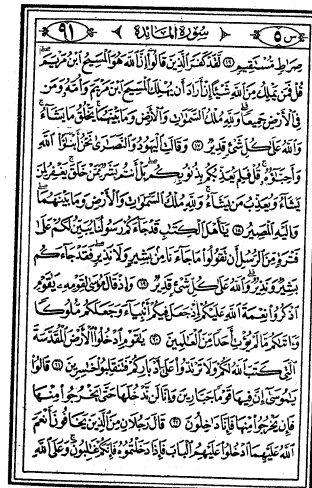 ٩١ سورة المائدة ٥
صراط مستقيم ۝ لقد كفر الذين قالوا ان الله هو المسيح ابن مريم
قل فمن يملك من الله شيئا ان اراد ان يهلك المسيح ابن مريم وامه ومن
في الارض جميعا ولله ملك السموات والارض وما بينهما يخلق ما يشاء
والله على كل شيء قدير ۝ وقالت اليهود والنصارى نحن ابناء الله
واحباؤه قل فلم يعذبكم بذنوبكم بل انتم بشر ممن خلق يغفر لمن
يشاء ويعذب من يشاء ولله ملك السموات والارض وما بينهما
واليه المصير ۝ يا اهل الكتاب قد جاءكم رسولنا يبين لكم على
فترة من الرسل ان تقولوا ما جاءنا من بشير ولا نذير فقد جاءكم
بشير ونذير والله على كل شيء قدير ۝ واذ قال موسى لقومه يا قوم
اذكروا نعمة الله عليكم اذ جعل فيكم انبياء وجعلكم ملوكا
واتاكم ما لم يؤت احدا من العالمين ۝ يا قوم ادخلوا الارض المقدسة
التي كتب الله لكم ولا ترتدوا على ادباركم فتنقلبوا خاسرين ۝ قالوا
يا موسى ان فيها قوما جبارين وانا لن ندخلها حتى يخرجوا منها
فان يخرجوا منها فانا داخلون ۝ قال رجلان من الذين يخافون انعم
الله عليهما ادخلوا عليهم الباب فاذا دخلتموه فانكم غالبون وعلى الله